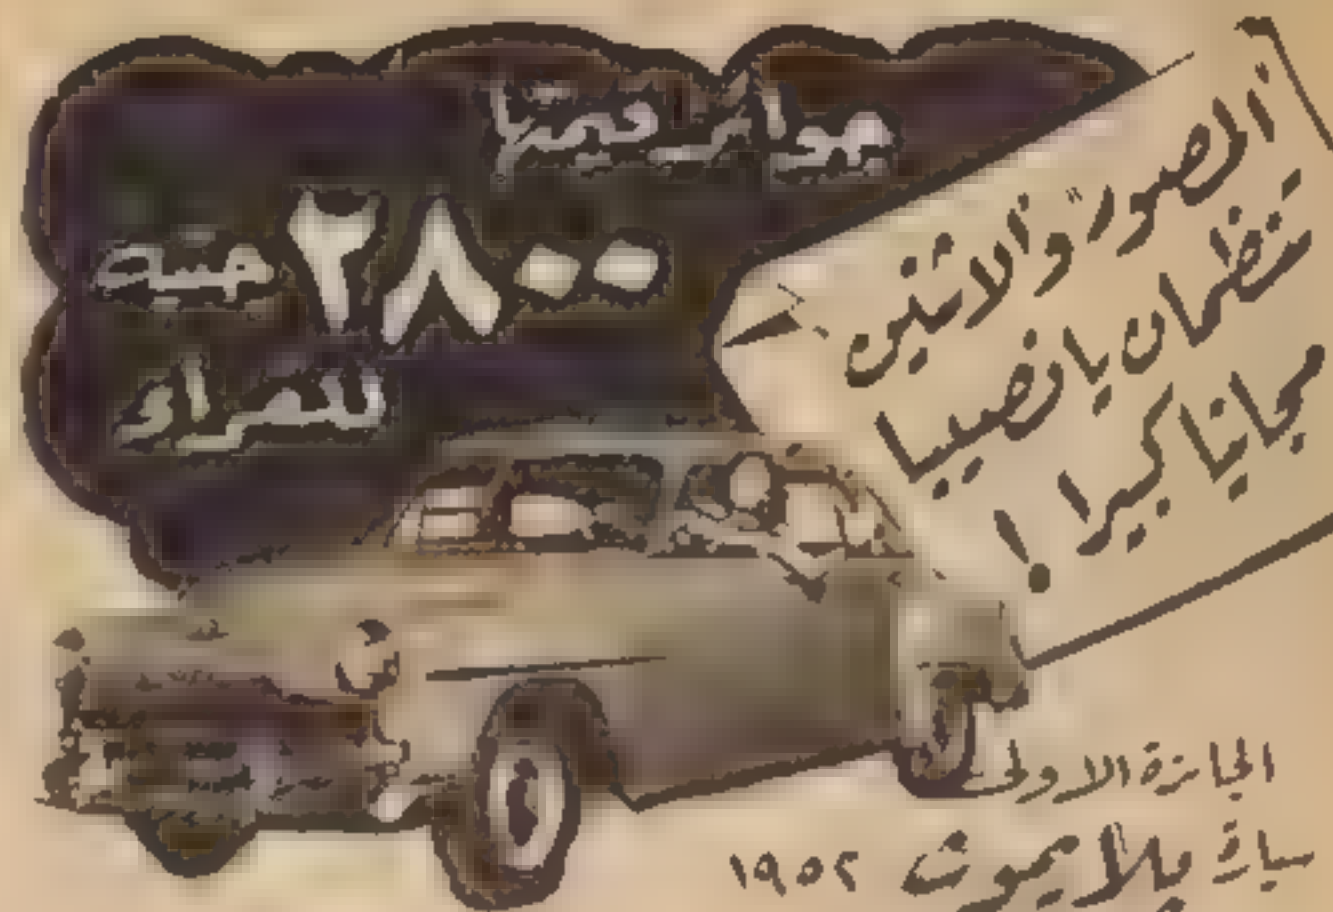 جوائز قيمتها
٢٨٠٠ جنيه
للقراء
المصور والاثنين
تنظمان يانصيبا
مجانيا كبيرا !
الجائزة الاولى
سيارة بلايموث ١٩٥٢